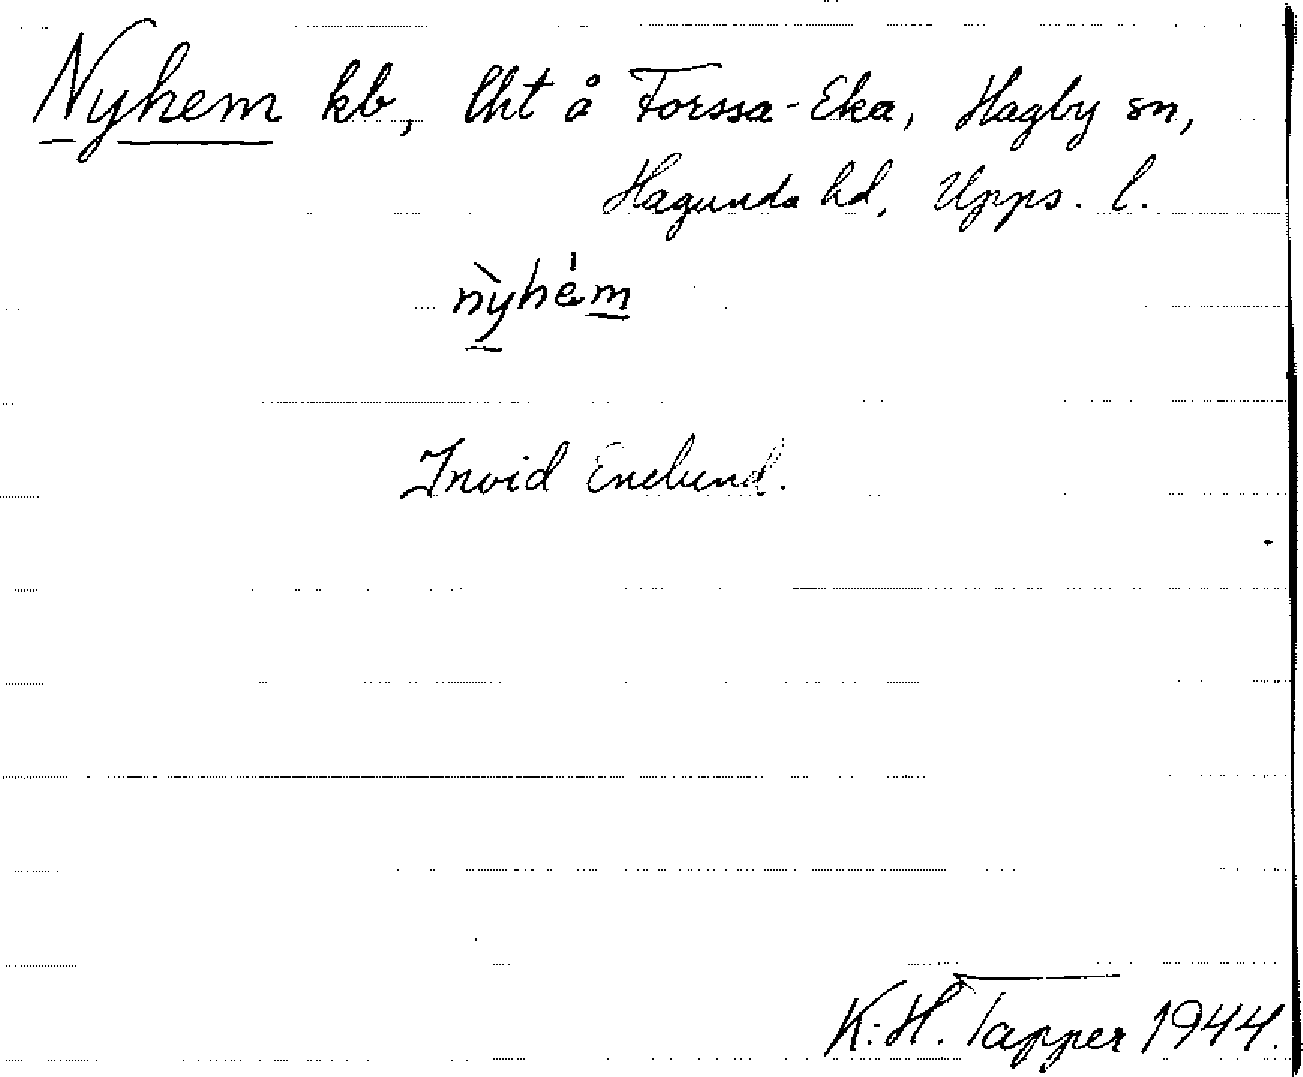 Nyhem kb, lht å Forssa-Eka, Hagby sn,
Hagunda hd, Upps. l.
nỳhém
Invid Enelund.
K.-H. Tapper 1944.